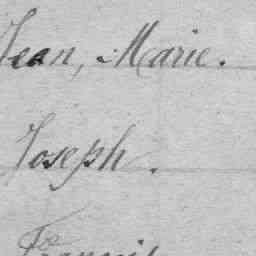 Jean, Marie.
Joseph.